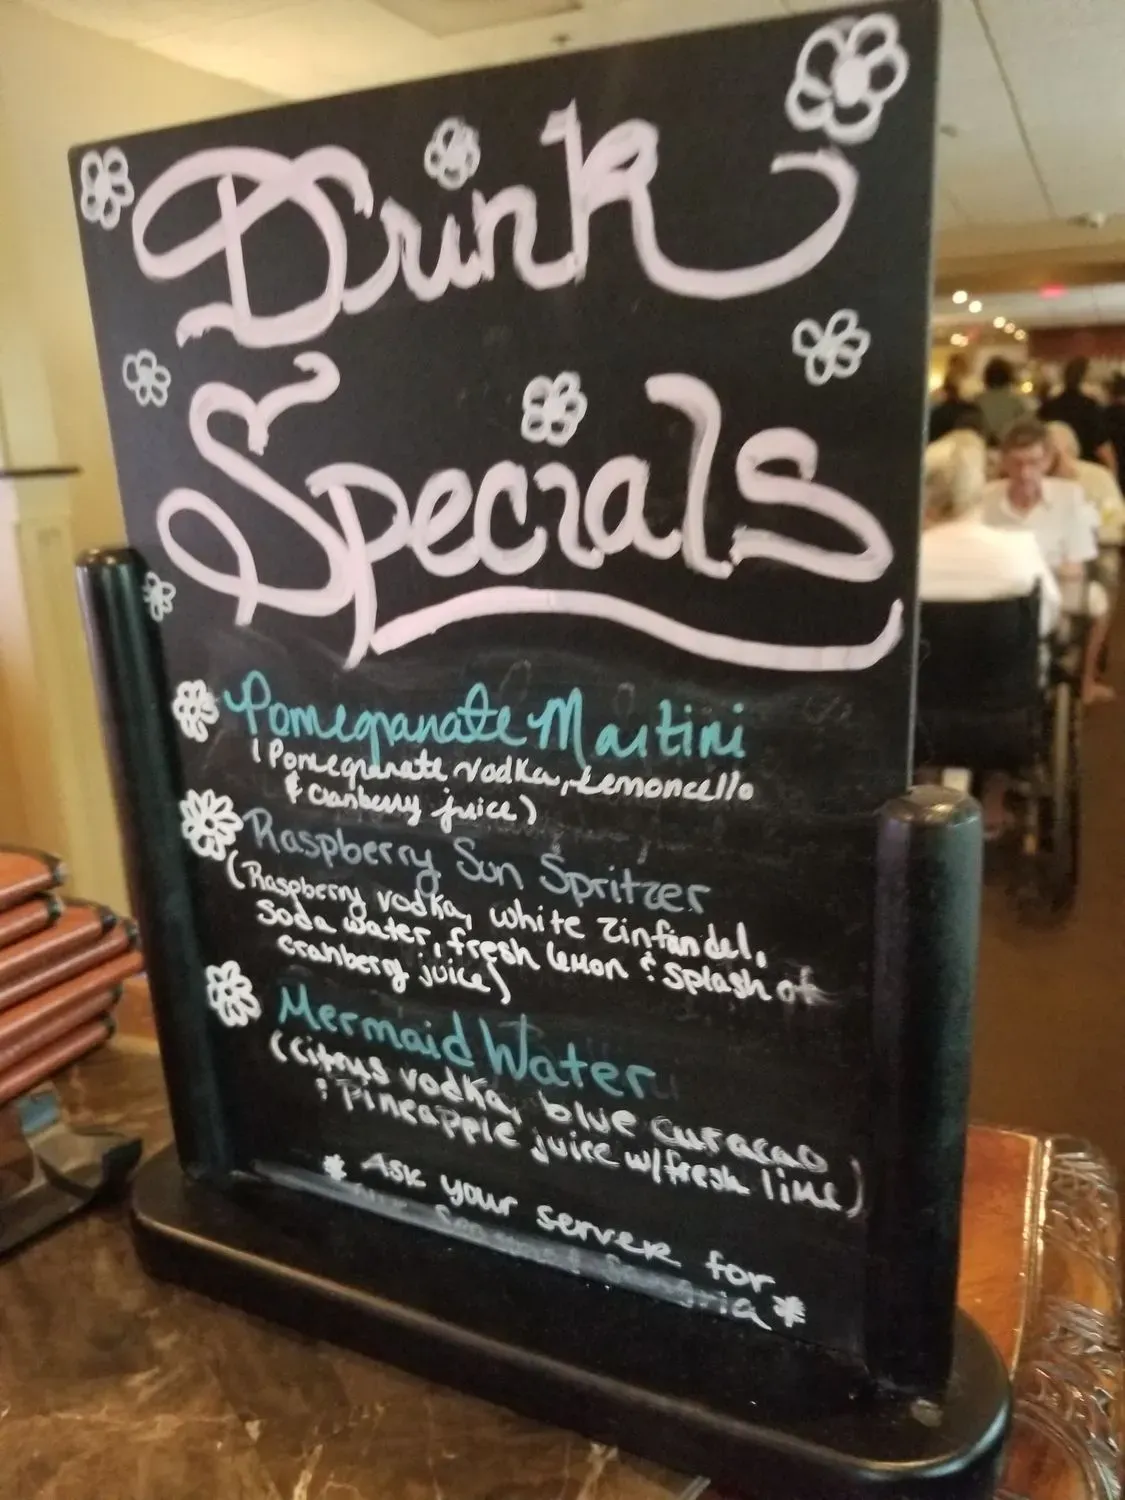 Drink
Specials
Pomegranate Martini
(Pomegranate vodka, Lemoncello
& cranberry juice)
Raspberry Sun Spritzer
(Raspberry vodka, white zinfandel,
soda water, fresh lemon & splash of
cranberry juice)
Mermaid Water
(Citrus vodka, blue curacao
& Pineapple juice w/fresh lime)
* Ask your server for
Sangria *